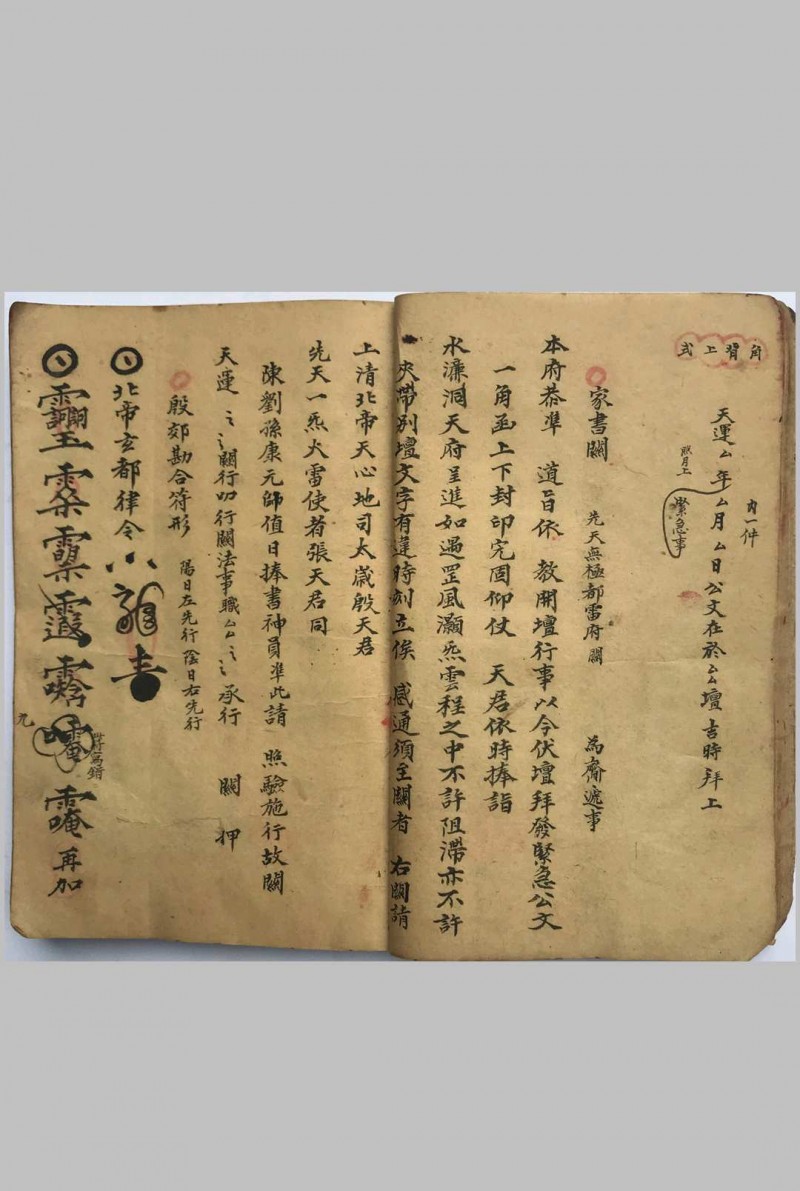 角背上式
內一件
天運ム年ム月ム日公文在於ムム壇 吉時拜上
緊急事
家書關 先天無極都雷府 關 為齎遞事
本府恭準 道旨依 教開壇行事以今伏壇拜發緊急公文
一角函上下封印完固仰仗 天君依時捧詣
水濂洞天府呈進如遇罡風灝炁雲程之中不許阻滯亦不許
夾帶別壇文字有違時刻立俟 感通須至關者 右關請
上清北帝天心地司太歲殷天君
先天一炁火雷使者張天君同
陳劉孫康元帥值日捧書神員準此請 照驗施行故關
天運 關行叩行關法事職ムム 承行 關 押
殷郊勘合符形 陽日左先行陰日右先行
北帝玄都律令
對寫錯
再加